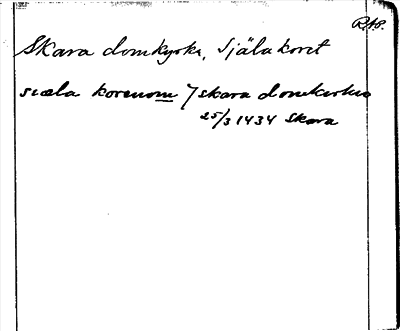 RAp.
Skara domkyrka, Själakoret
siæla korenom j skara domkirkio
25/3 1434 Skara